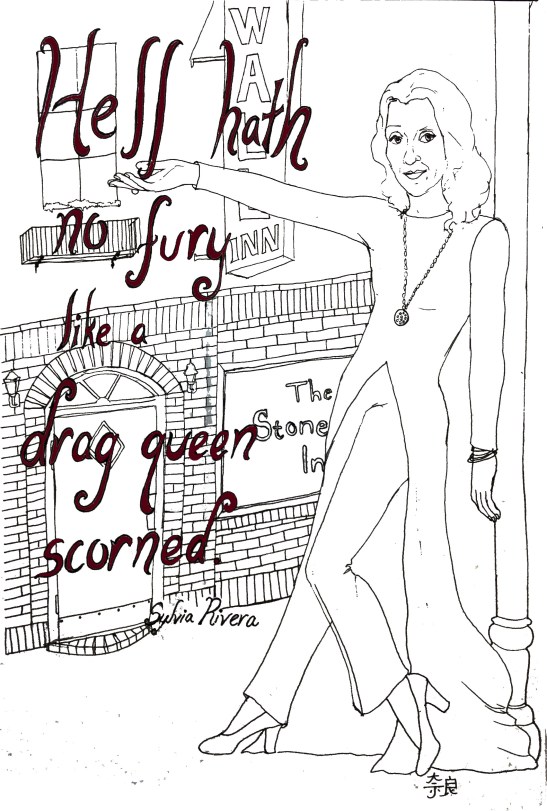 Hell hath
no fury
like a
drag queen
scorned.
Sylvia Rivera
WA
INN
The
Stone
In
奈良